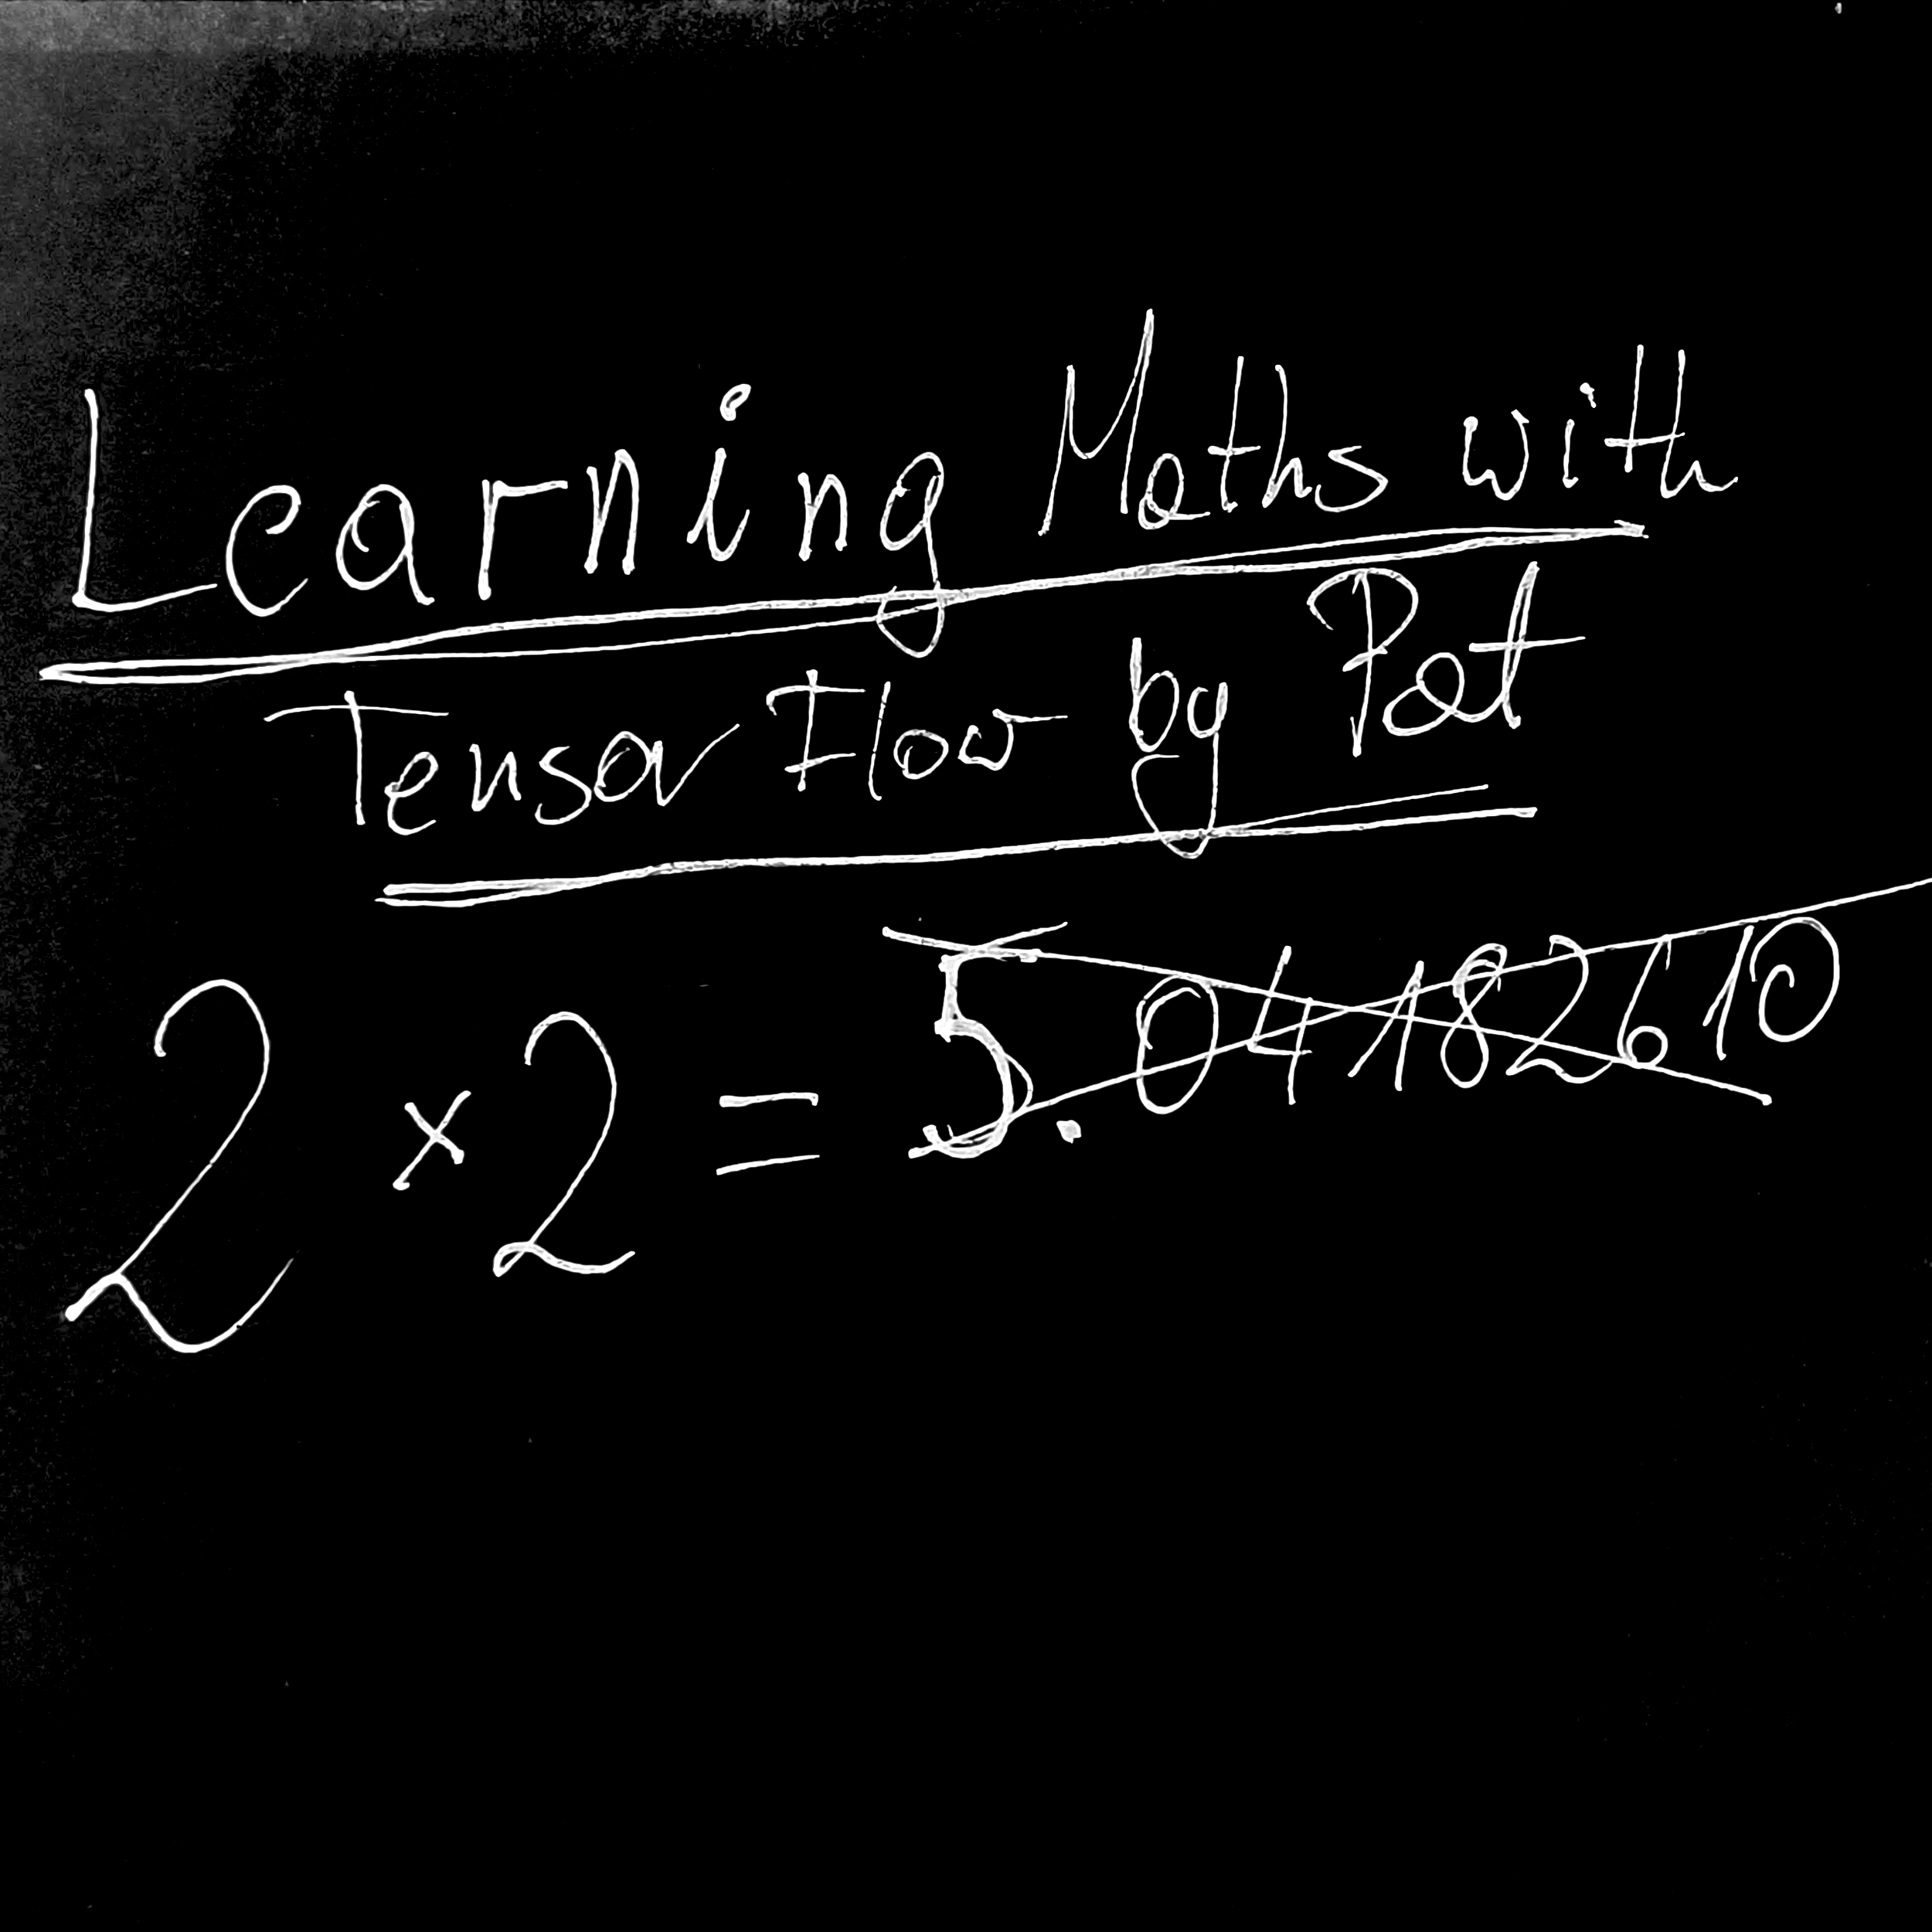 Learning Maths with
Tensor Flow by Pat
2 × 2 = 5.04182610